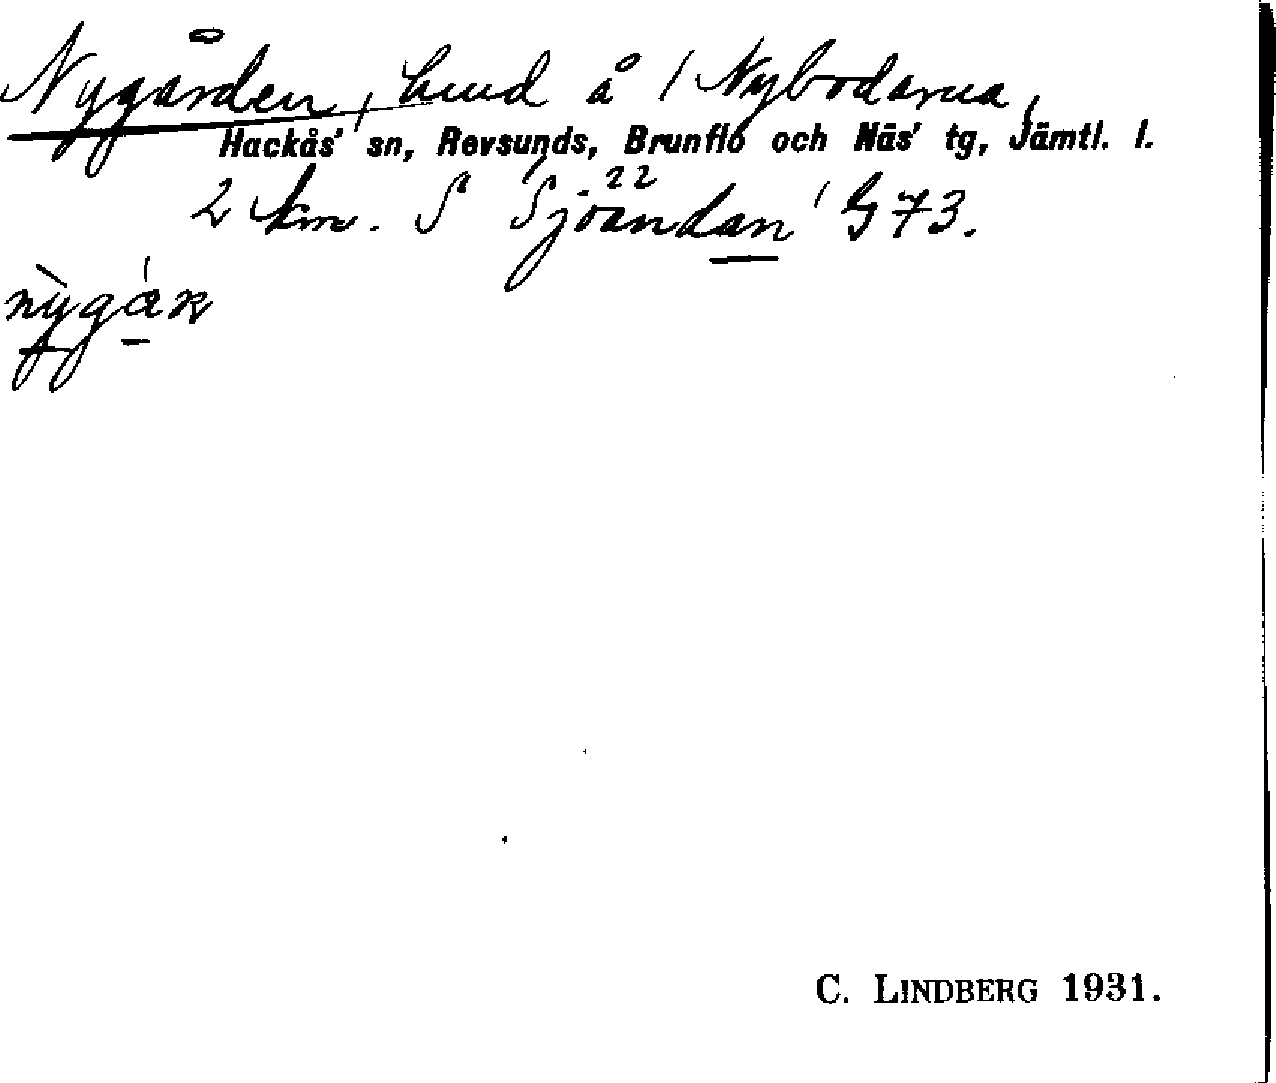 Nygården, bud å / Nybodarna,
Hackås' sn, Revsunds, Brunflo och Näs' tg, Jämtl. l.
2 km. S Sjöändan G 73.
C. LINDBERG 1931.